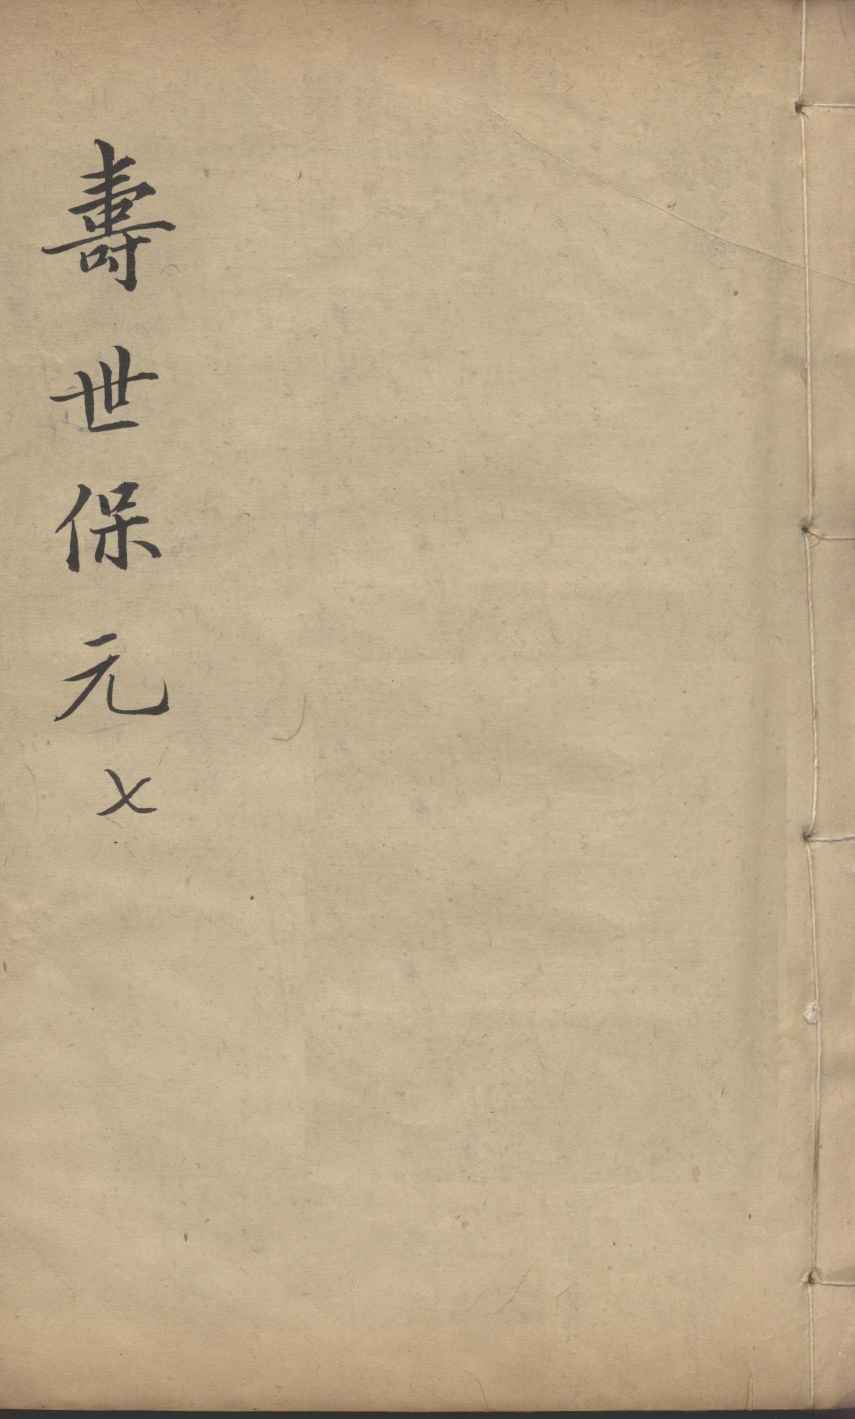 壽世保元〤